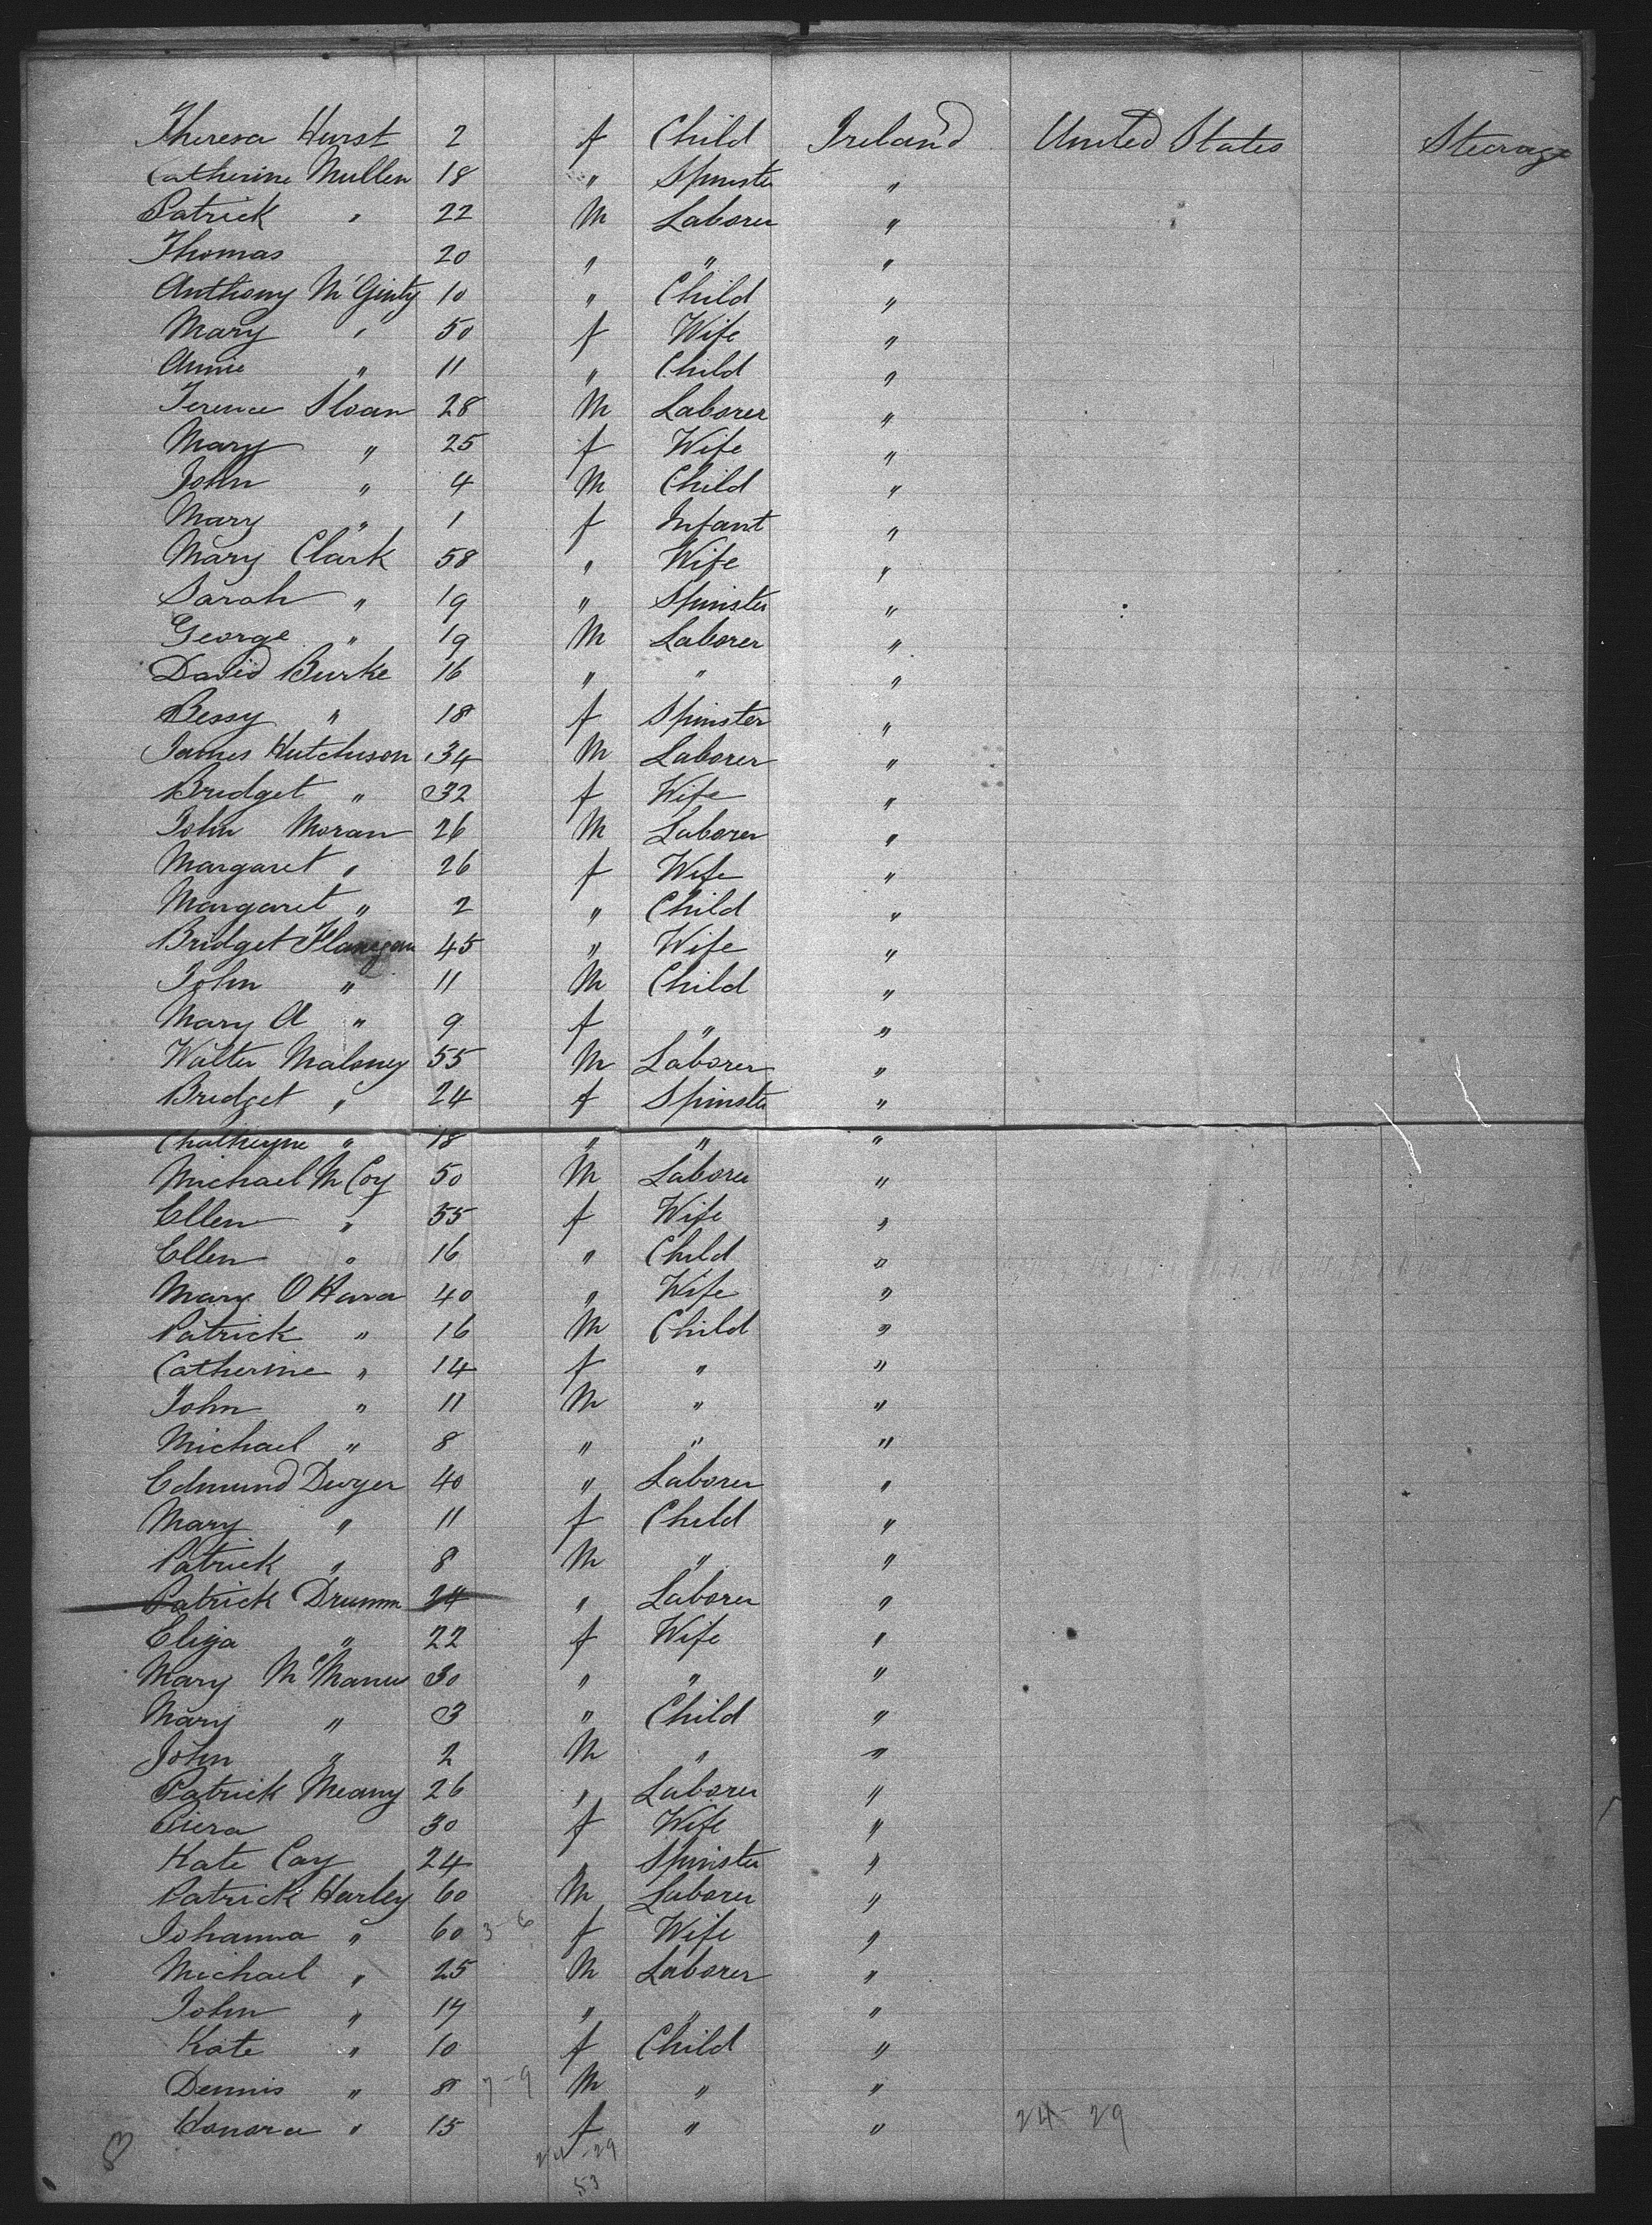 Theresa Hurst 2 f Child Ireland United States Steerage
Catherine Mullen 18 " Spinster "
Patrick " 22 M Laborer "
Thomas 20 " " "
Anthony McGinty 10 " Child "
Mary " 50 f Wife "
Annie " 11 " Child "
Terence Sloan 28 M Laborer "
Mary " 25 f Wife "
John " 4 M Child "
Mary " 1 f Infant "
Mary Clark 58 " Wife "
Sarah " 19 " Spinster "
George " 19 M Laborer "
David Burke 16 " " "
Bessy " 18 f Spinster "
James Hutchison 34 M Laborer "
Bridget " 32 f Wife "
John Moran 26 M Laborer "
Margaret " 26 f Wife "
Margaret " 2 " Child "
Bridget Flanegan 45 " Wife "
John " 11 M Child "
Mary A " 9 f " "
Walter Maloney 55 M Laborer "
Bridget " 24 f Spinster "
" 18 " " "
Michael McCoy 50 M Laborer "
Ellen " 55 f Wife "
Ellen " 16 " Child "
Mary O Hara 40 " Wife "
Patrick " 16 M Child "
Catherine " 14 f " "
John " 11 M " "
Michael " 8 " " "
Edmund Dwyer 40 " Laborer "
Mary " 11 f Child "
Patrick " 8 M " "
Patrick Drumm 24 " Laborer "
Eliza " 22 f Wife "
Mary McManus 30 " " "
Mary " 3 " Child "
John " 2 M " "
Patrick Meany 26 " Laborer "
30 f Wife "
Kate Coy 24 " Spinster "
Patrick Harley 60 M Laborer "
Johanna " 60 3-6 f Wife "
Michael " 25 M Laborer "
John " 14 " " "
Kate " 10 f Child "
Dennis " 8 7-9 M " "
Honora " 15 f " " 24-29
24-29
53